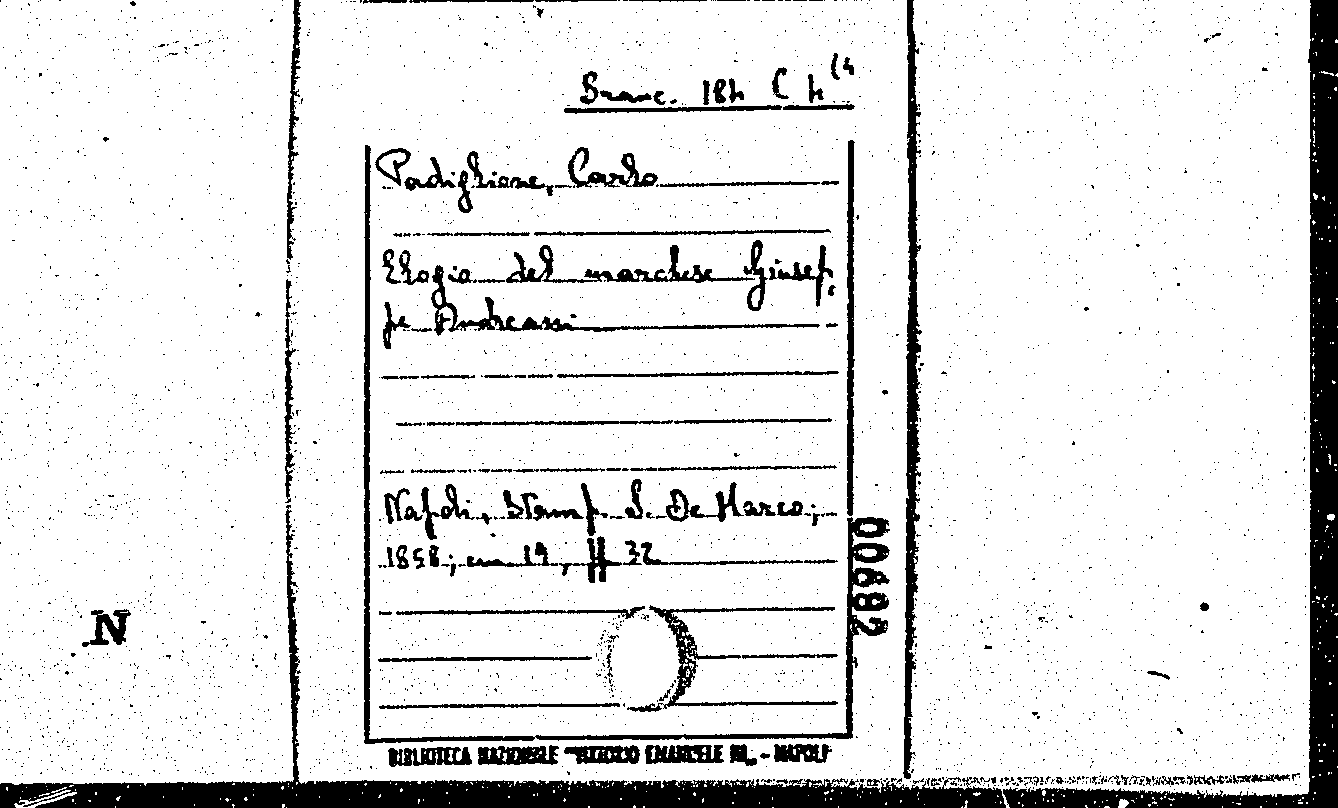 Branc. 184 C 4 (4
Padiglione, Carlo
Elogio del marchese Giusep,
pe Andreassi
Napoli, Stamp. S. De Marco;
1858; cm. 19, pp 32
00682
N
BIBLIOTECA NAZIONALE "VITTORIO EMANUELE III„ - NAPOLI